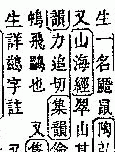 生一名鼯鼠陶弘
又山海經翠山其
韻力追切集韻倫
飛鸓也 又集
生詳鸓字註